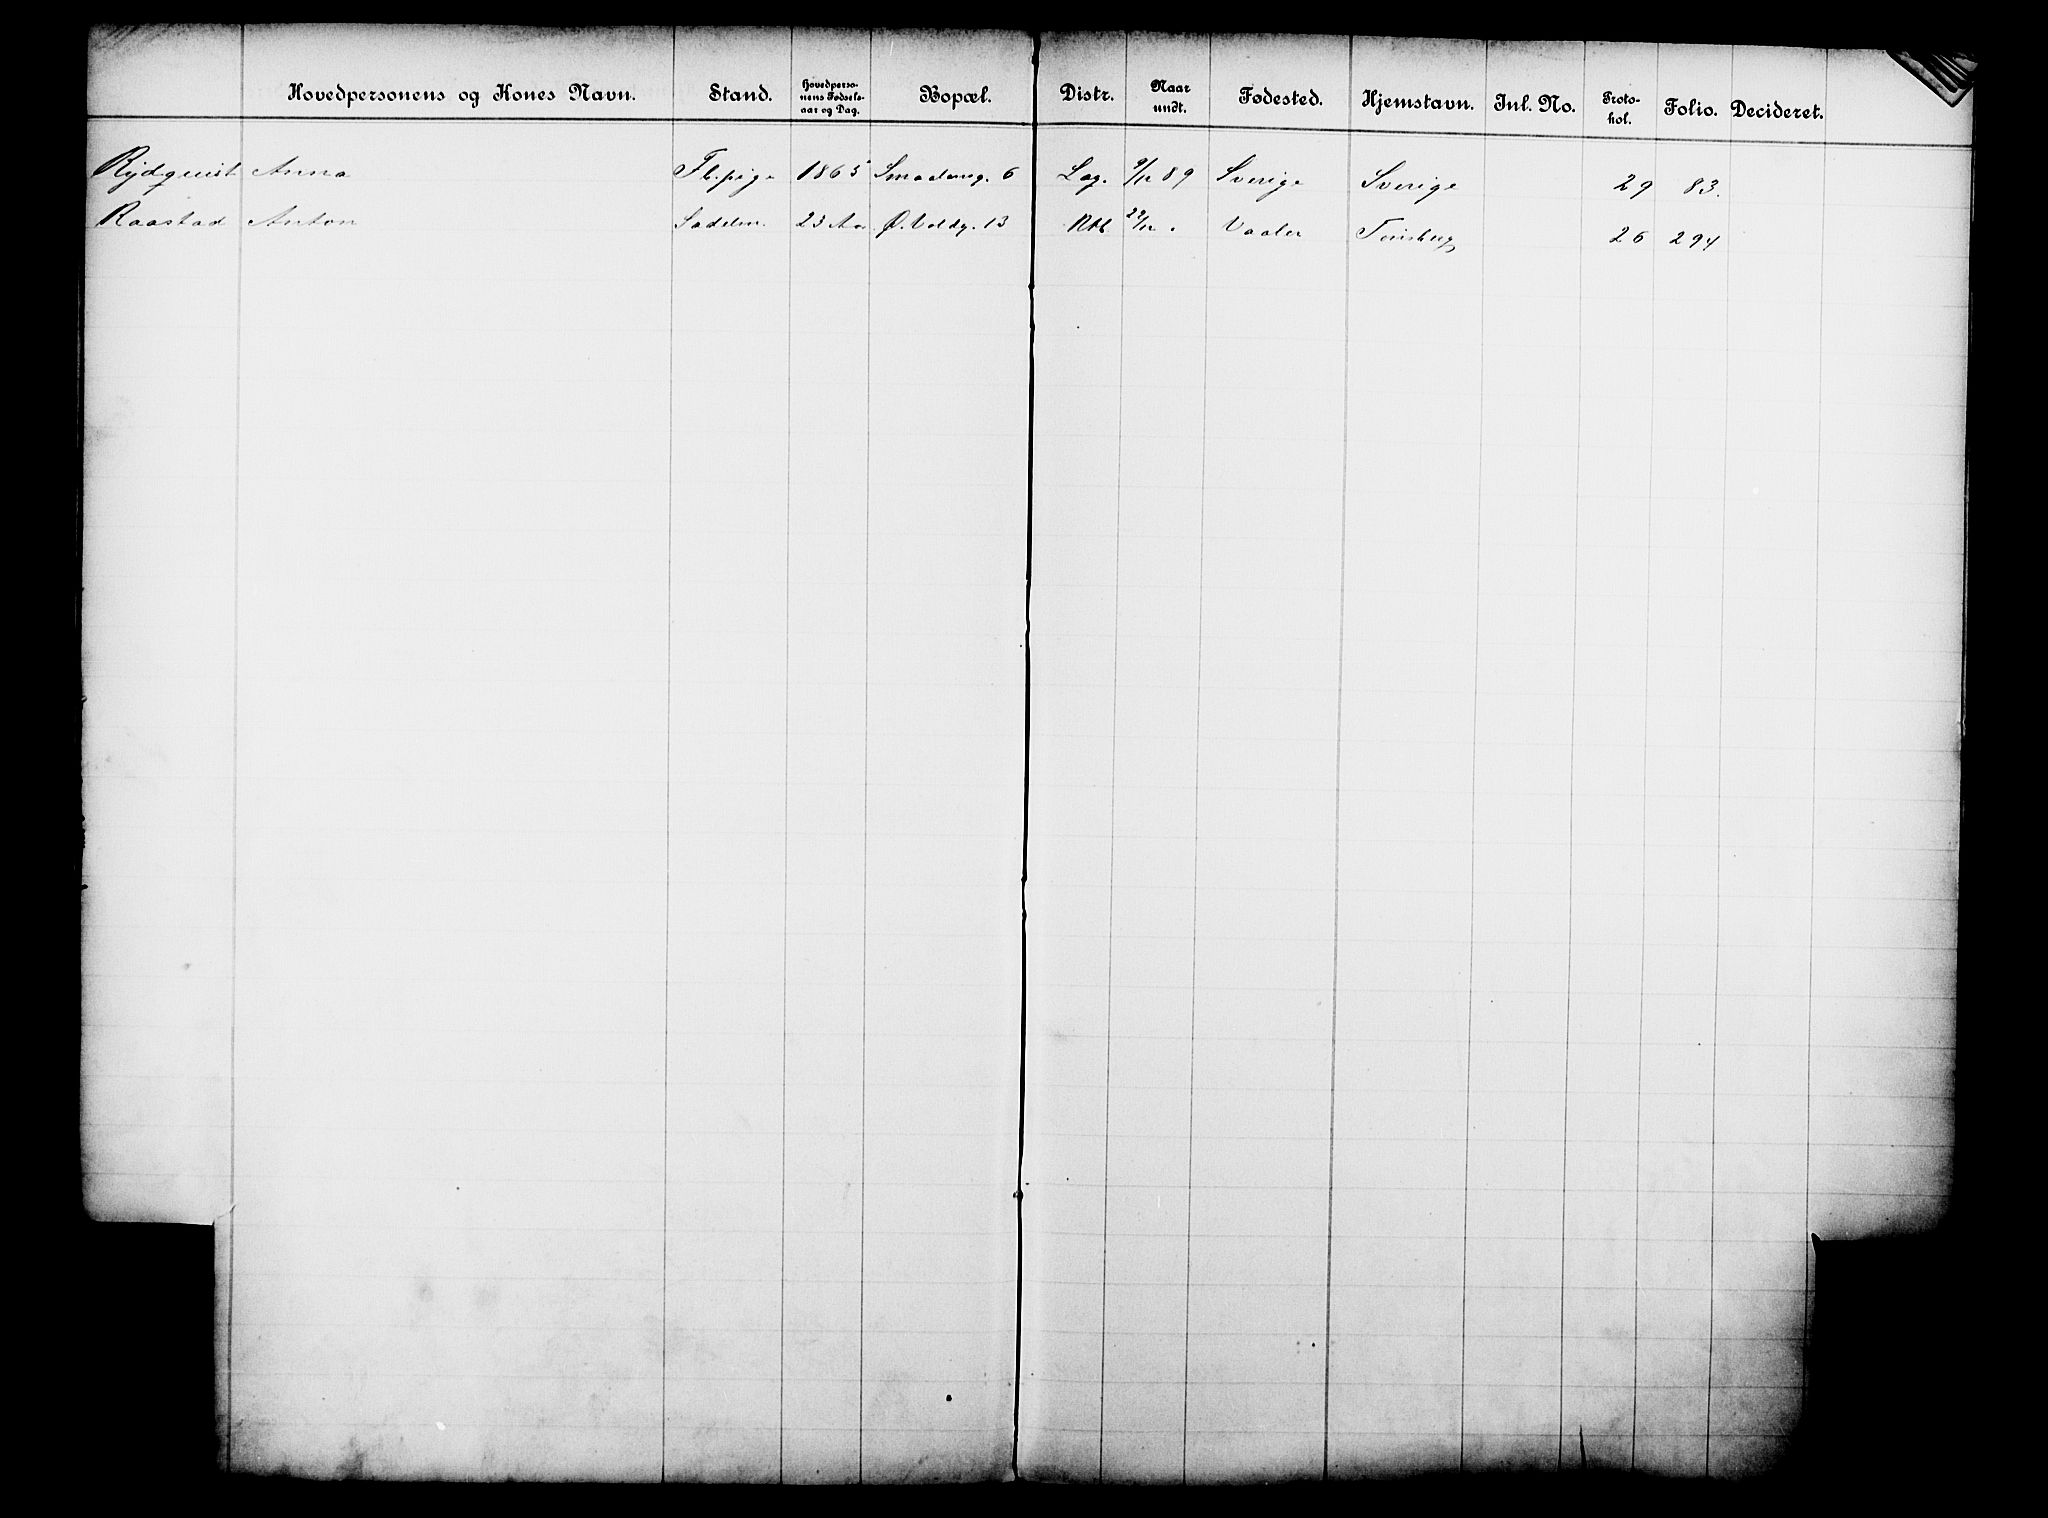 Hovedpersonens og Kones Navn. Stand. Hovedperso-nens Fødsels-aar og Dag. Bopæl. Distr. Naar undt. Fødested. Hjemstavn. Inl. No. Proto-kol. Folio. Decideret.
Rydquist Anna 1865 6 Lag. 9/12 89 Sverige Sverige 29 83.
Raastad Anton Sadelm. 23 Aar Ø. Voldg. 13 29/12 Vaaler 26 294